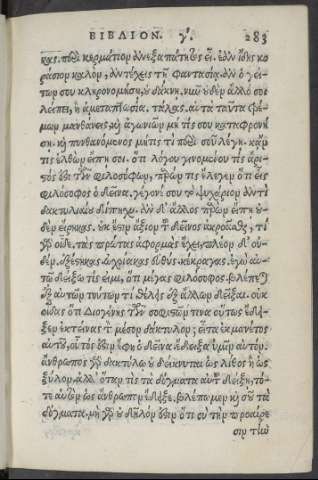 ΒΙΒΛΙΟΝ. γ΄. 283
κας. περὶ κερμάτιον ἀνεξαπάτητος εἶ. ἐὰν ἴδῃς κο
ράσιον καλὸν, ἀντέχεις τῇ φαντασίᾳ. ἂν ὁ γεί-
των σου κληρονομήσῃ, οὐ δάκνῃ, νῦν οὐδὲν ἄλλο σοι
λείπει, ἢ ἀμεταπτωσία. τάλας. αὐτὰ ταῦτα τρέ-
μων μανθάνεις, καὶ ἀγωνιῶν μή τίς σου καταφρονή
σῃ. καὶ πυνθανόμενος μή τίς τι περὶ σοῦ λέγῃ. κἄν
τις ἐλθὼν εἴπῃ σοι. ὅτι λόγου γινομένου τίς ἄρι-
στός ἐστι τῶν φιλοσόφων, παρών τις ἔλεγεν ὅτι εἷς
φιλόσοφος ὁ δεῖνα, γέγονέ σου τὸ ψυχάριον ἀντὶ
δακτυλιαίου δίπηχυ. ἂν δ' ἄλλος παρὼν εἴπῃ οὐ-
δὲν εἴρηκας. οὐκ ἔστιν ἄξιον τοῦ δεῖνος ἀκροᾶσθαι, τί
γὰρ οἶδε. τὰς πρώτας ἀφορμὰς ἔχει, πλέον δ' οὐ-
δέν. ἐξέστηκας. ὠχρίακας. εὐθὺς κέκραγας. ἐγὼ αὐ-
τῷ δείξω τίς εἰμι, ὅτι μέγας φιλόσοφος. βλέπεται
ἐξ αὐτῶν τούτων τί θέλεις ἐξ ἄλλων δεῖξαι. οὐκ
οἶδας ὅτι Διογένης τῶν σοφιστῶν τινα οὕτως ἔδει-
ξεν ἐκτείνας τὸν μέσον δάκτυλον; εἶτα ἐκμανέντος
αὐτοῦ, οὗτός ἐστιν ἔφη ὁ δεῖνα ἔδειξα ὑμῖν αὐτόν.
ἄνθρωπος γὰρ δακτύλῳ οὐ δείκνυται ὡς λίθος ἢ ὡς
ξύλον, ἀλλ' ὅταν τις τὰ δόγματα αὐτοῦ δείξῃ, τό-
τε αὐτὸν ὡς ἄνθρωπον ἔδειξε, βλέπωμεν καὶ σοῦ τὰ
δόγματα. μὴ γὰρ οὐ δῆλόν ἐστιν ὅτι σὺ τὴν προαίρε
σιν τὴν